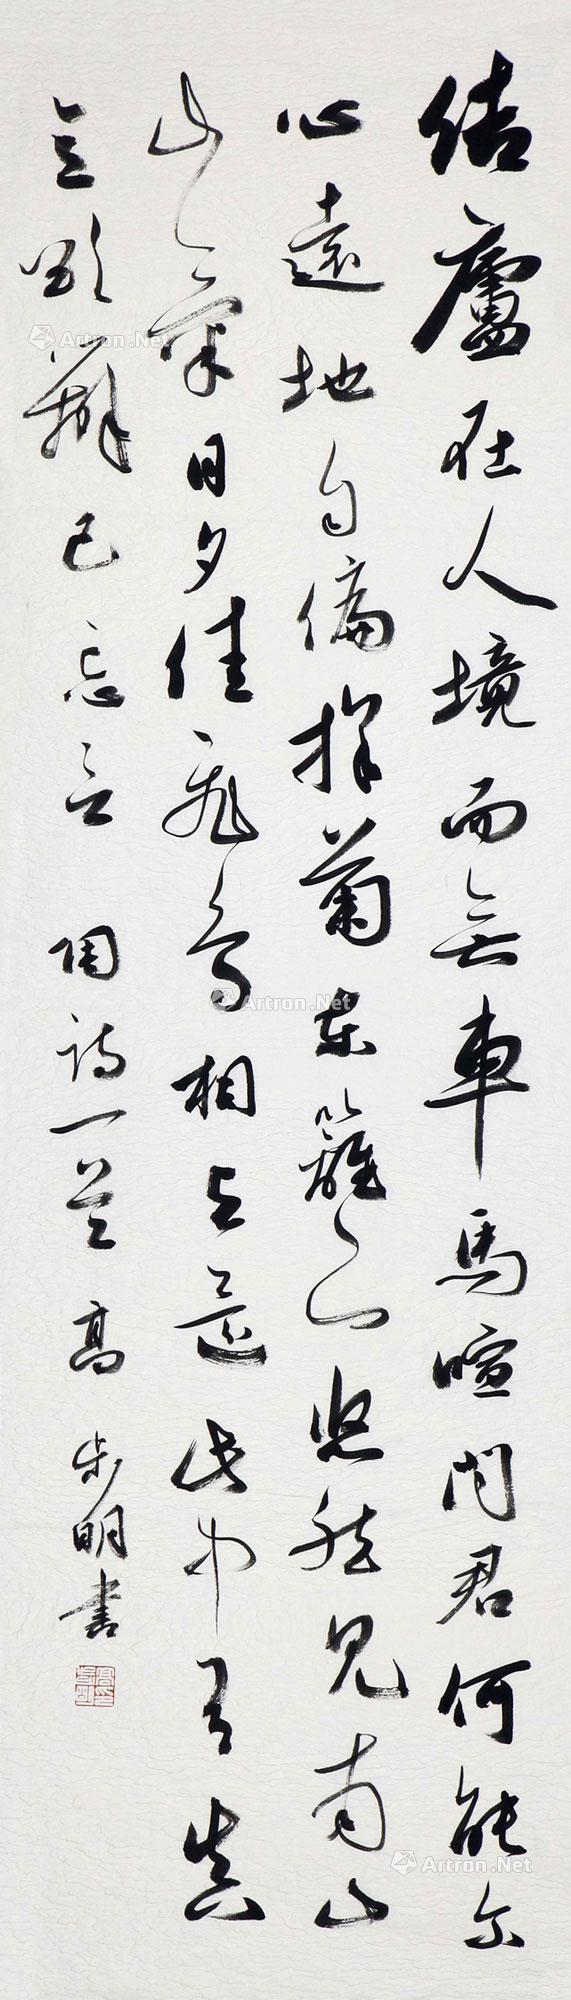 結廬在人境而無車馬喧問君何能尔
心遠地自偏採菊東籬下悠然見南山
山氣日夕佳飛鳥相與還此中有真
意欲辨已忘言 陶詩一首 高步明書
Artron.Net
Artron.Net
Artron.Net